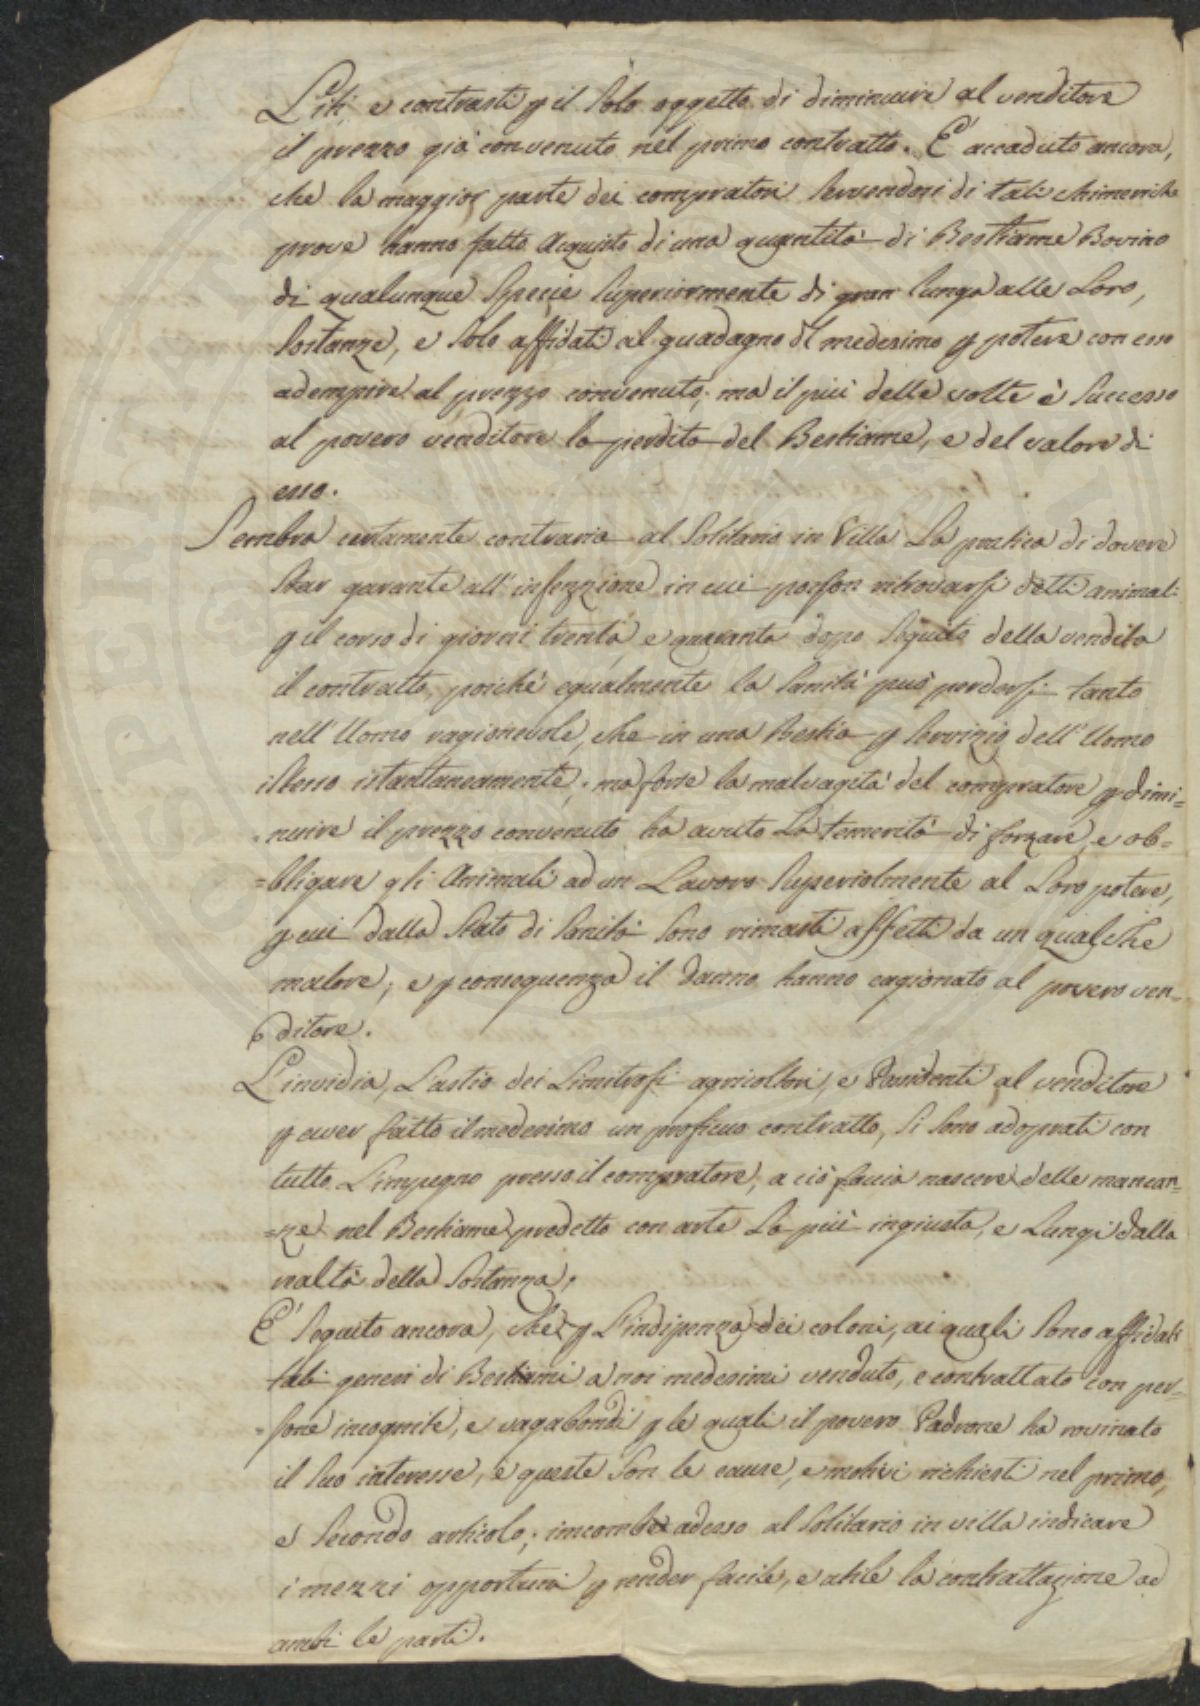 Liti, e contrasti p il solo oggetto di diminuire al venditore
il prezzo già convenuto nel primo contratto. E' accaduto ancora,
che la maggior parte dei compratori servendosi di tali chimeriche
prove hanno fatto acquisto di una quantità di Bestiame Bovino
di qualunque specie superiormente di gran lunga alle Loro,
sostanze, e solo affidati al guadagno del medesimo p potere con esso
adempire al prezzo convenuto; ma il più delle volte è successo
al povero venditore la perdita del Bestiame, e del valore di
esso.
Sembra certamente contraria al Solitario in Villa La pratica di dovere
star garante all'infezzione in cui posson ritrovarsi detti animali
p il corso di giorni trenta, e quaranta dopo seguito della vendita
il contratto, poiché egualmente la sanità può perdersi tanto
nell'Uomo ragionevole, che in una Bestia p servizio dell'Uomo
istesso istantaneamente; ma forse la malvagità del compratore p dimi=
=nuire il prezzo convenuto ha avuto La temerità di forzare, e ob=
=bligare gli Animali ad un Lavoro superiolmente al Loro potere,
p cui dallo stato di sanità sono rimasti affetti da un qualche
malore; e p conseguenza il danno hanno cagionato al povero ven=
ditore.
L'invidia, L'astio dei Limitrofi agricoltori, e Possidenti al venditore
p aver fatto il medesimo un proficuo contratto, si sono adoprati con
tutto L'impegno presso il compratore, a ciò faccia nascere delle mancan=
=ze nel Bestiame predetto con arte La più ingiusta, e Lungi dalla
realtà della sostanza;
E' seguito ancora, che p L'indipenza dei coloni, ai quali sono affidati
tali generi di Bestiami a noi medesimi venduto, e contrattato con per=
=sone incognite, e vagabondi p le quali il povero Padrone ha rovinato
il suo interesse, e queste son le cause, e motivi richiesti nel primo,
e secondo articolo; imcombe adesso al Solitario in villa indicare
i mezzi opportuni p render facile, e utile la contrattazione ad
ambi le parti.